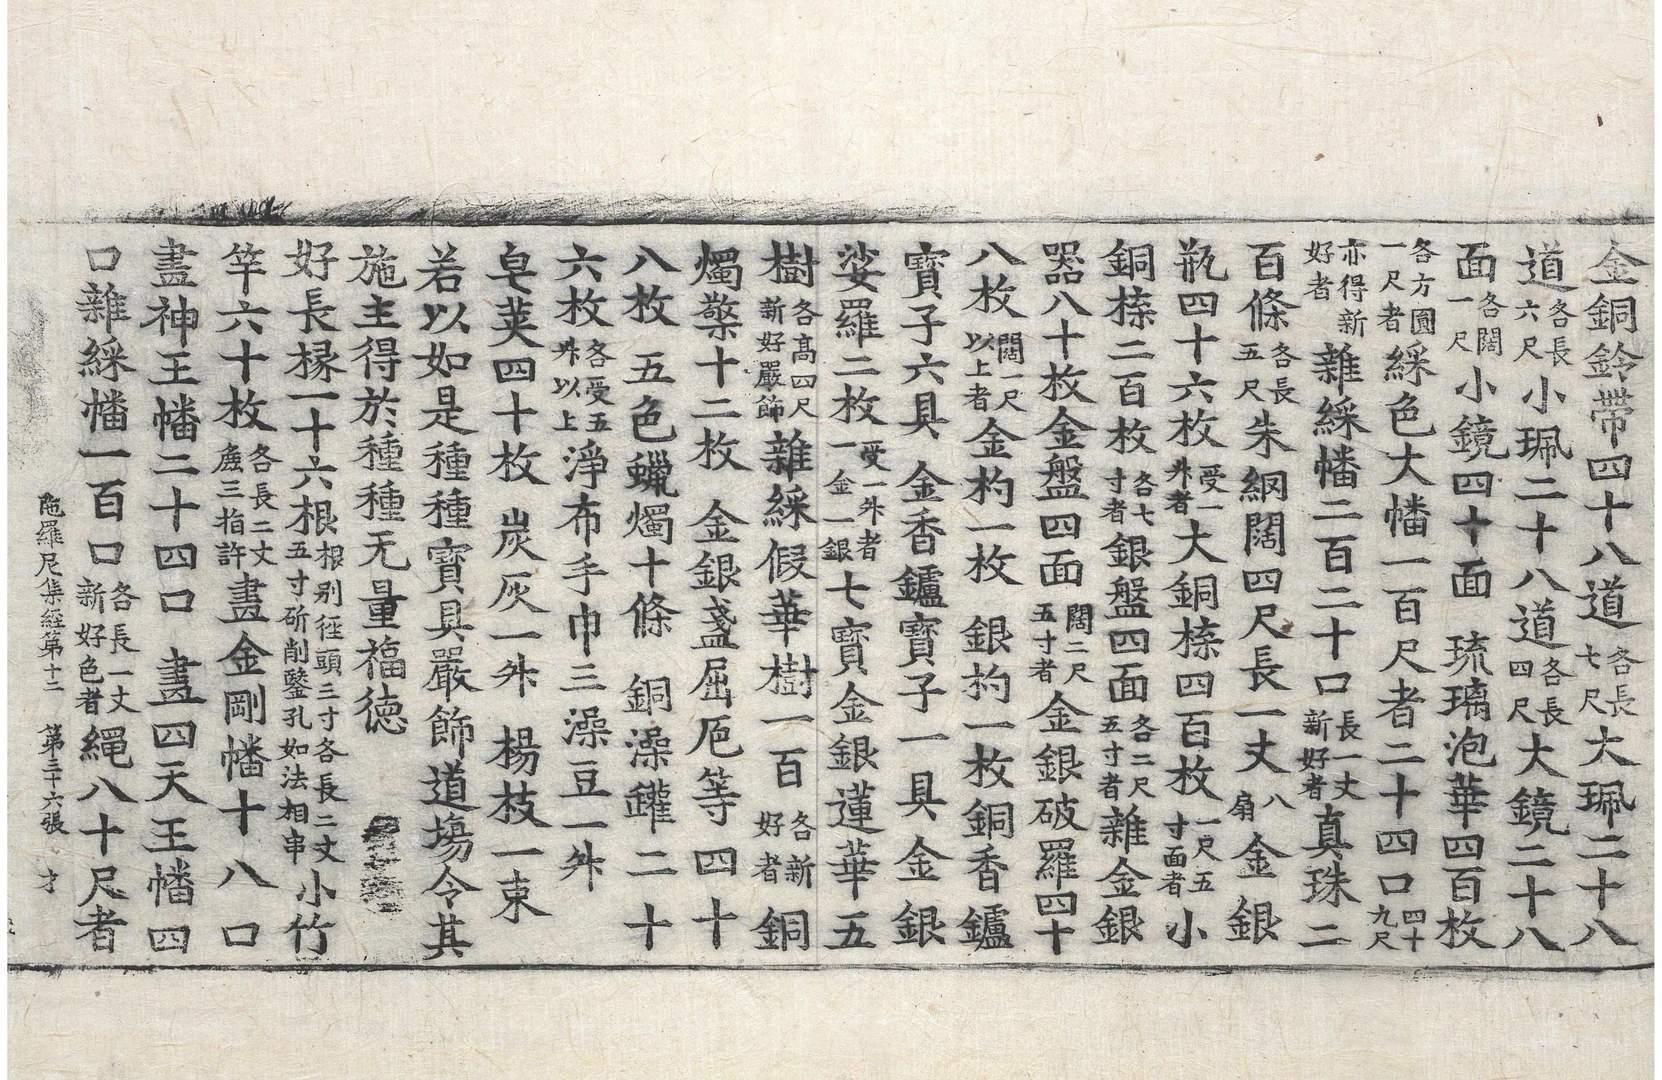 金銅鈴帶四十八道各長七尺大珮二十八
道各長六尺小珮二十八道各長四尺大鏡二十八
面各闊一尺小鏡四十面 琉璃泡華四百枚
各方圓一尺者綵色大幡一百尺者二十四口四十九尺
亦得新好者雜綵幡二百二十口長一丈新好者真珠二
百條各長五尺朱網闊四尺長一丈八扇金銀
瓶四十六枚受一升者大銅𣓉四百枚一尺五寸面者小
銅𣓉二百枚各七寸者銀盤四面各二尺五寸者雜金銀
器八十枚金盤四面闊二尺五寸者金銀破羅四十
八枚闊一尺以上者金杓一枚 銀杓一枚銅香鑪
寶子六具 金香鑪寶子一具 金銀
娑羅二枚受一升者一金一銀七寶金銀蓮華五
樹各高四尺新好嚴飾雜綵假華樹一百各新好者銅
燭檠十二枚 金銀盞屈卮等四十
八枚 五色蠟燭十條 銅澡罐二十
六枚各受五升以上淨布手巾三澡豆一升
皂莢四十枚 炭灰一升 楊枝一束
若以如是種種寶具嚴飾道場令其
施主得於種種无量福德
好長椽一十六根根別徑頭三寸各長二丈五寸斫削鑿孔如法相串小竹
竿六十枚各長二丈麁三指許畫金剛幡十八口
畫神王幡二十四口 畫四天王幡四
口雜綵幡一百口各長一丈新好色者繩八十尺者
陁羅尼集經第十二 第三十六張 才